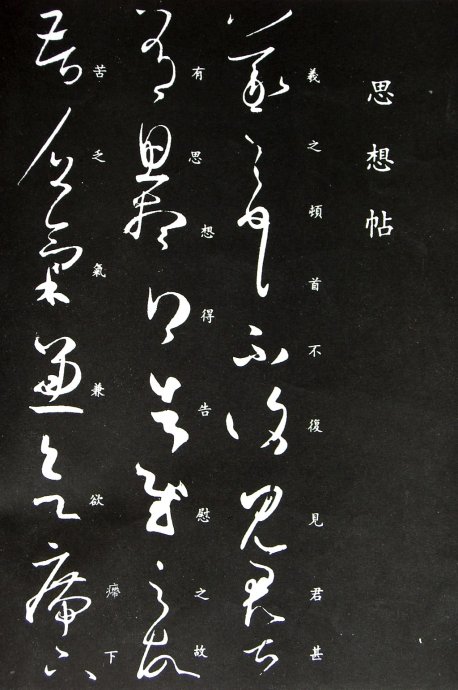 思想帖
義之頓首不復見君甚
有思想得告慰之故
苦乏氣兼欲㿃下